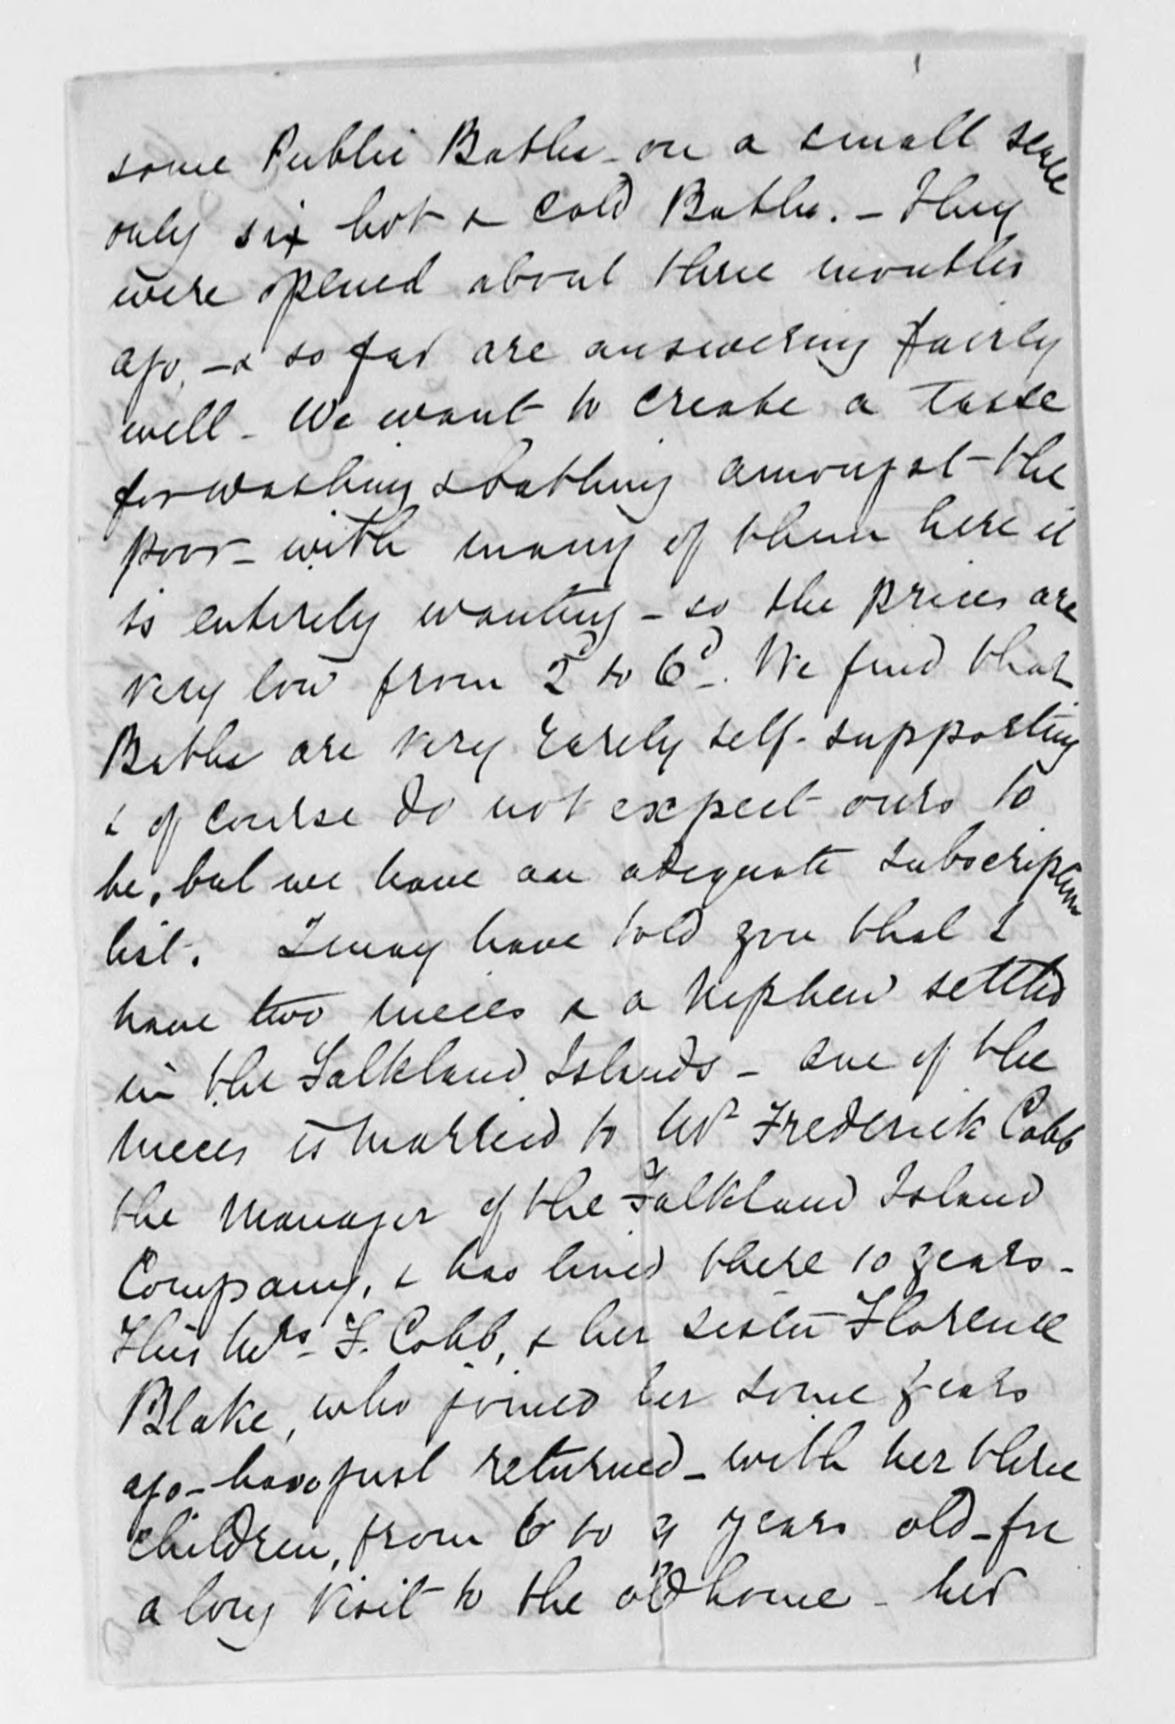 some Public Baths - on a small scale
only six hot & cold Baths. - They
were opened about three months
ago, - & so far are answering fairly
well - We want to create a taste
for washing & bathing amongst the
poor - with many of them here it
is entirely wanting - so the prices are
very low from 2d to 6d. We find that
Baths are very rarely self-supporting
& of course do not expect ours to
be, but we have an adequate subscription
list. I may have told you that I
have two nieces & a Nephew settled
in the Falkland Islands - one of the
nieces is married to Mr Frederick Cobb
the Manager of the Falkland Island
Company, & has lived there 10 years -
This Mrs F. Cobb, & her sister Florence
Blake, who joined her some years
ago - have just returned - with her three
children, from 6 to years old - for
a long visit to the old home - her